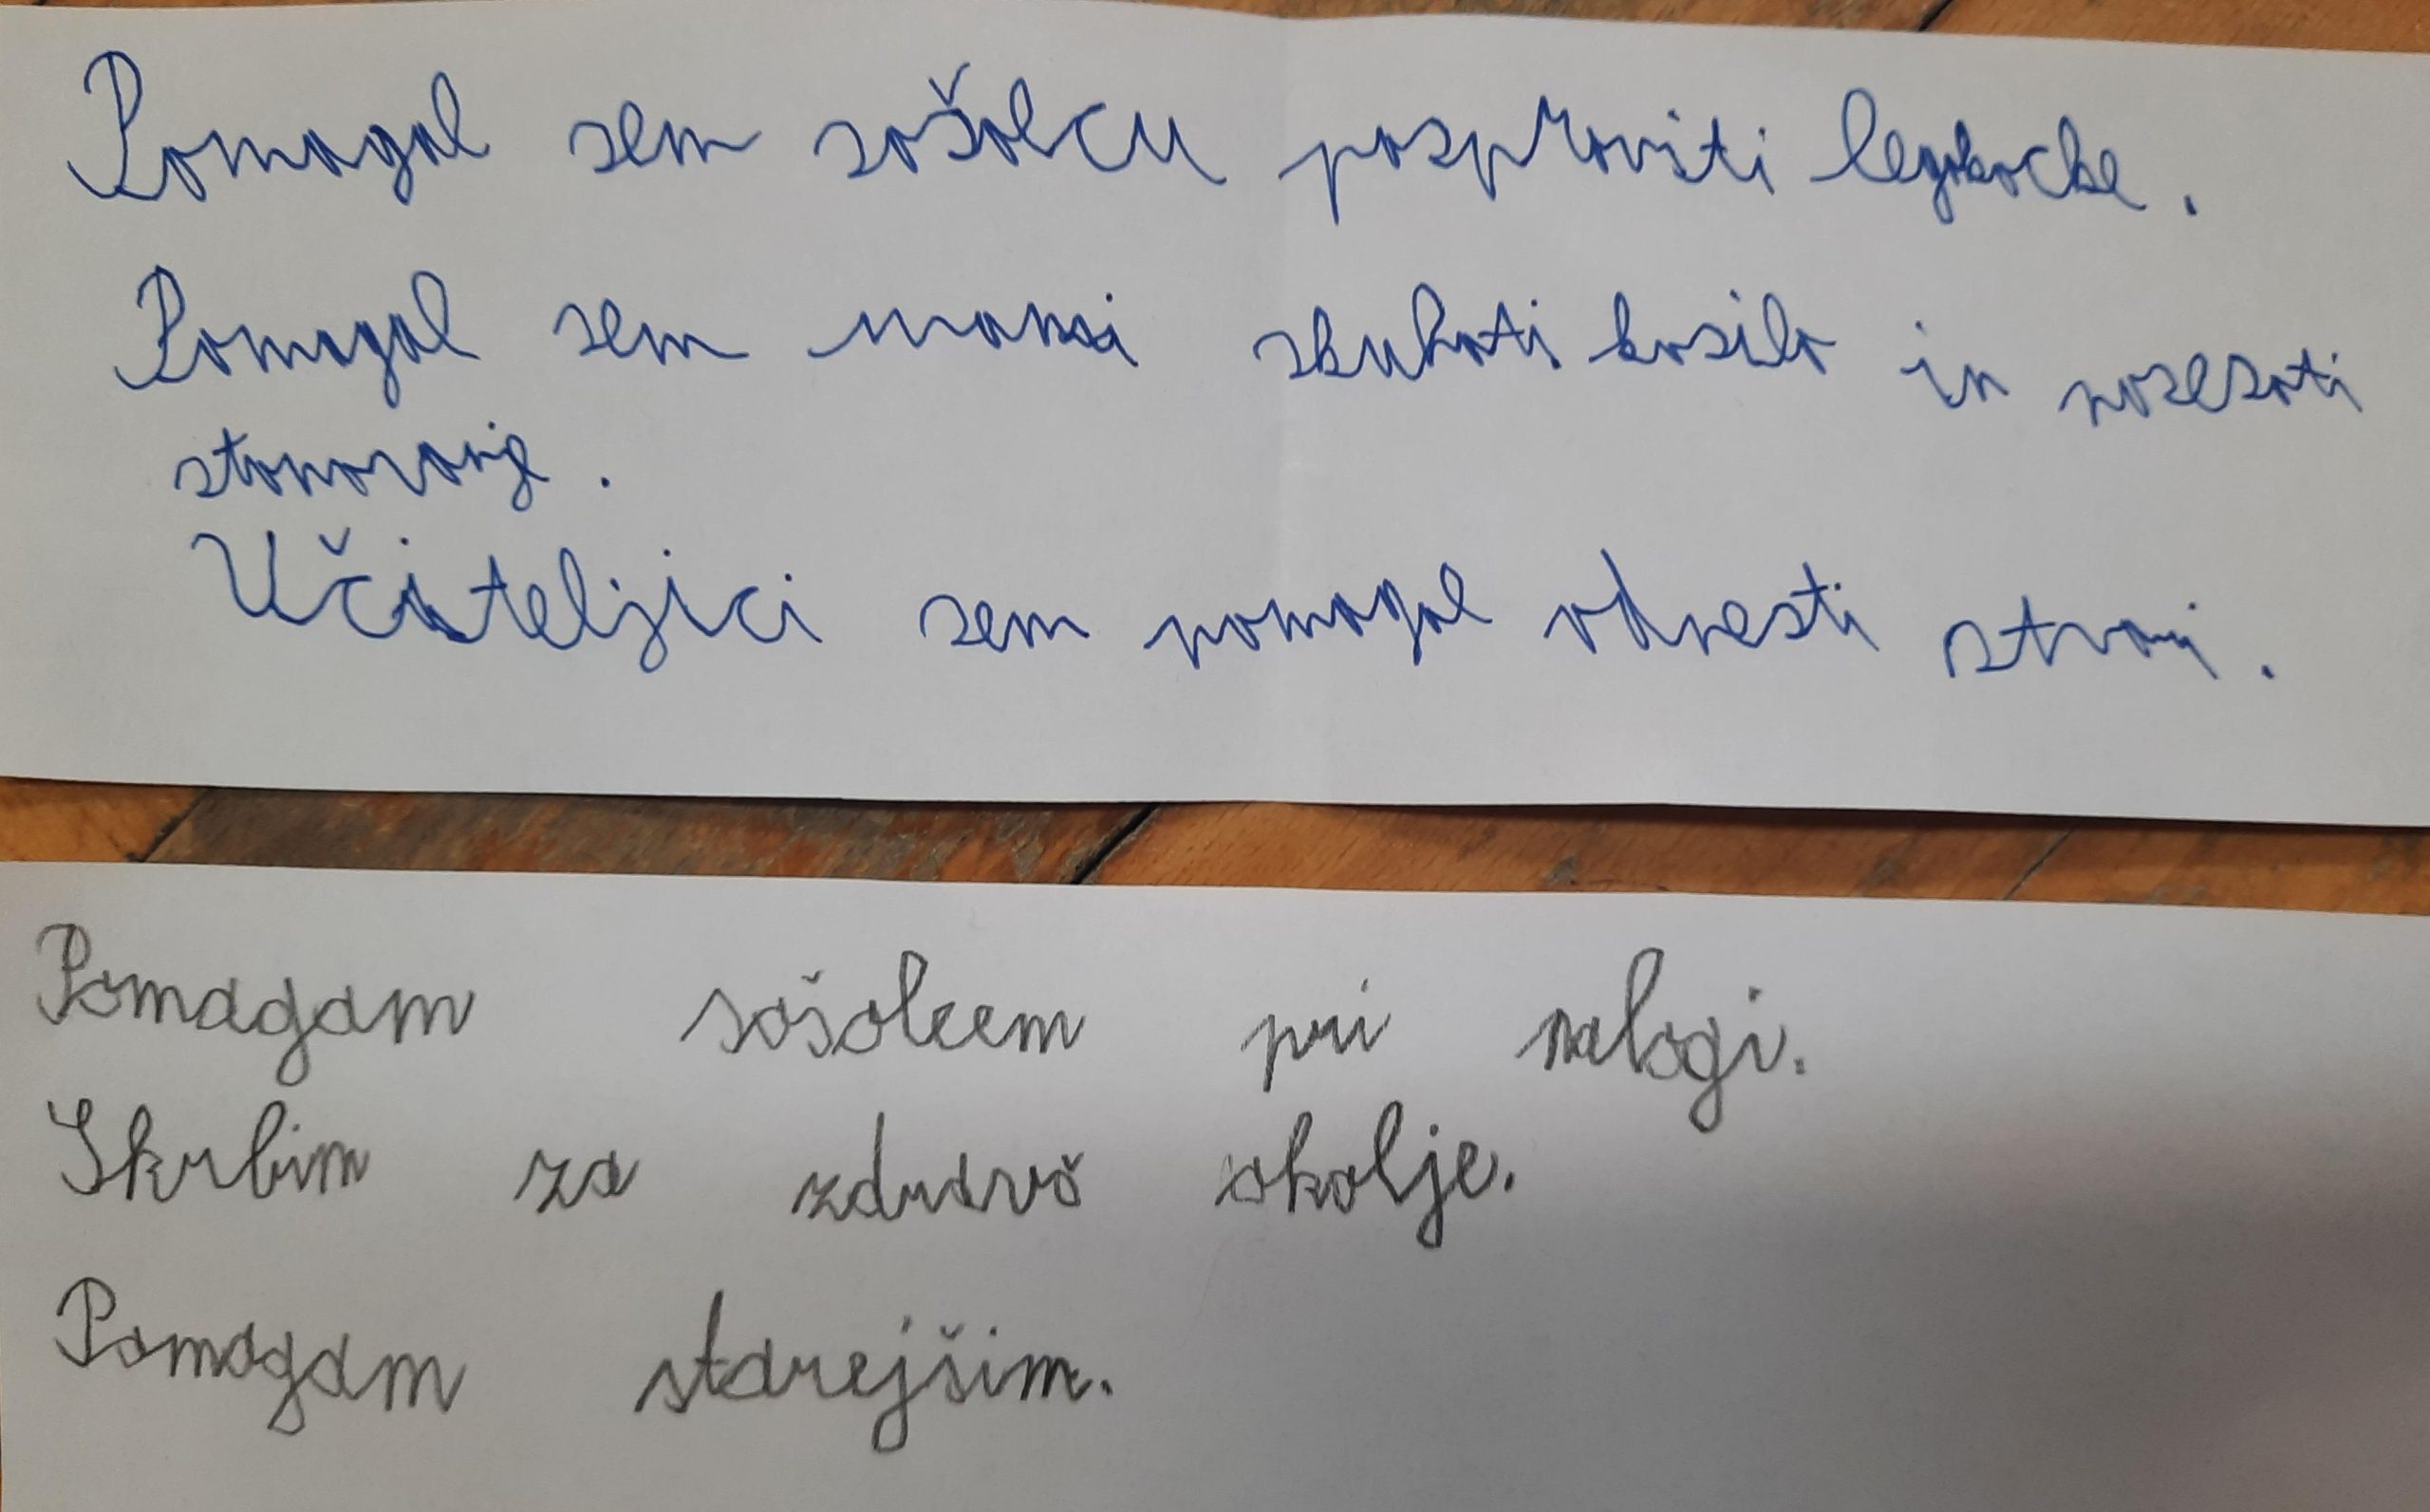 Pomagal sem sošolcu pospraviti legokocke.
Pomagal sem mami skuhati kosilo in posesati
stanovanje.
Učiteljici sem pomagal odnesti stvari.
Pomagam sošolcem pri nalogi.
Skrbim za zdravo okolje.
Pomagam starejšim.